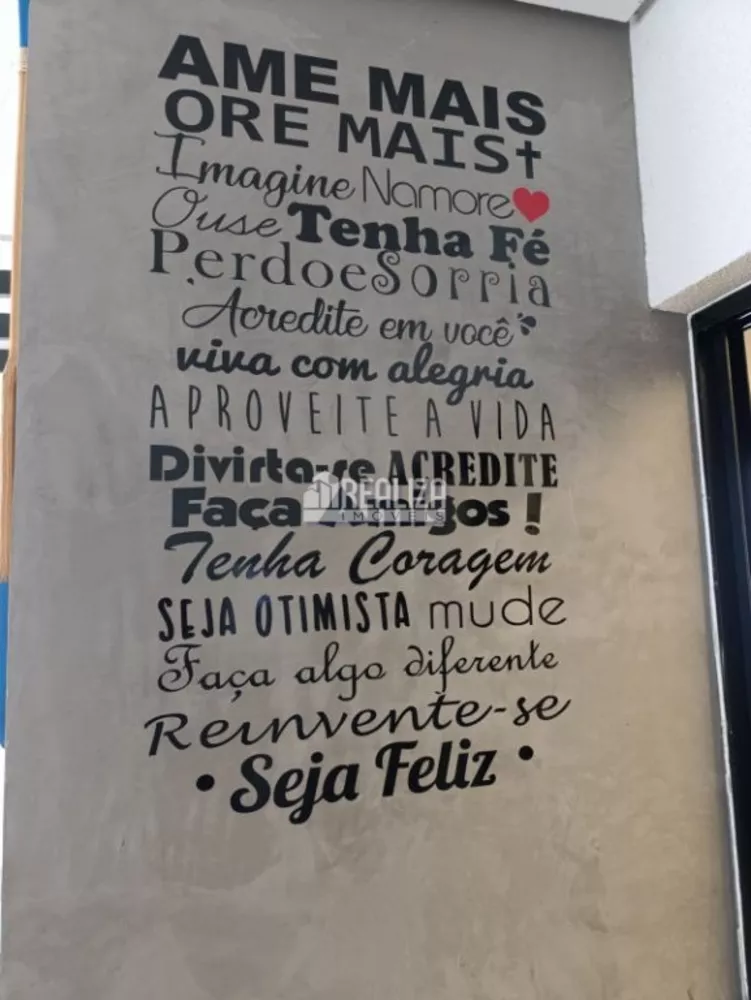 AME MAIS
ORE MAIS✝
Imagine Namore♥
Ouse Tenha Fé
Perdoe Sorria
Acredite em você
viva com alegria
APROVEITE A VIDA
Divirta-se ACREDITE
Faça Amigos !
REALIZA
IMÓVEIS
Tenha Coragem
SEJA OTIMISTA mude
Faça algo diferente
Reinvente-se
• Seja Feliz •